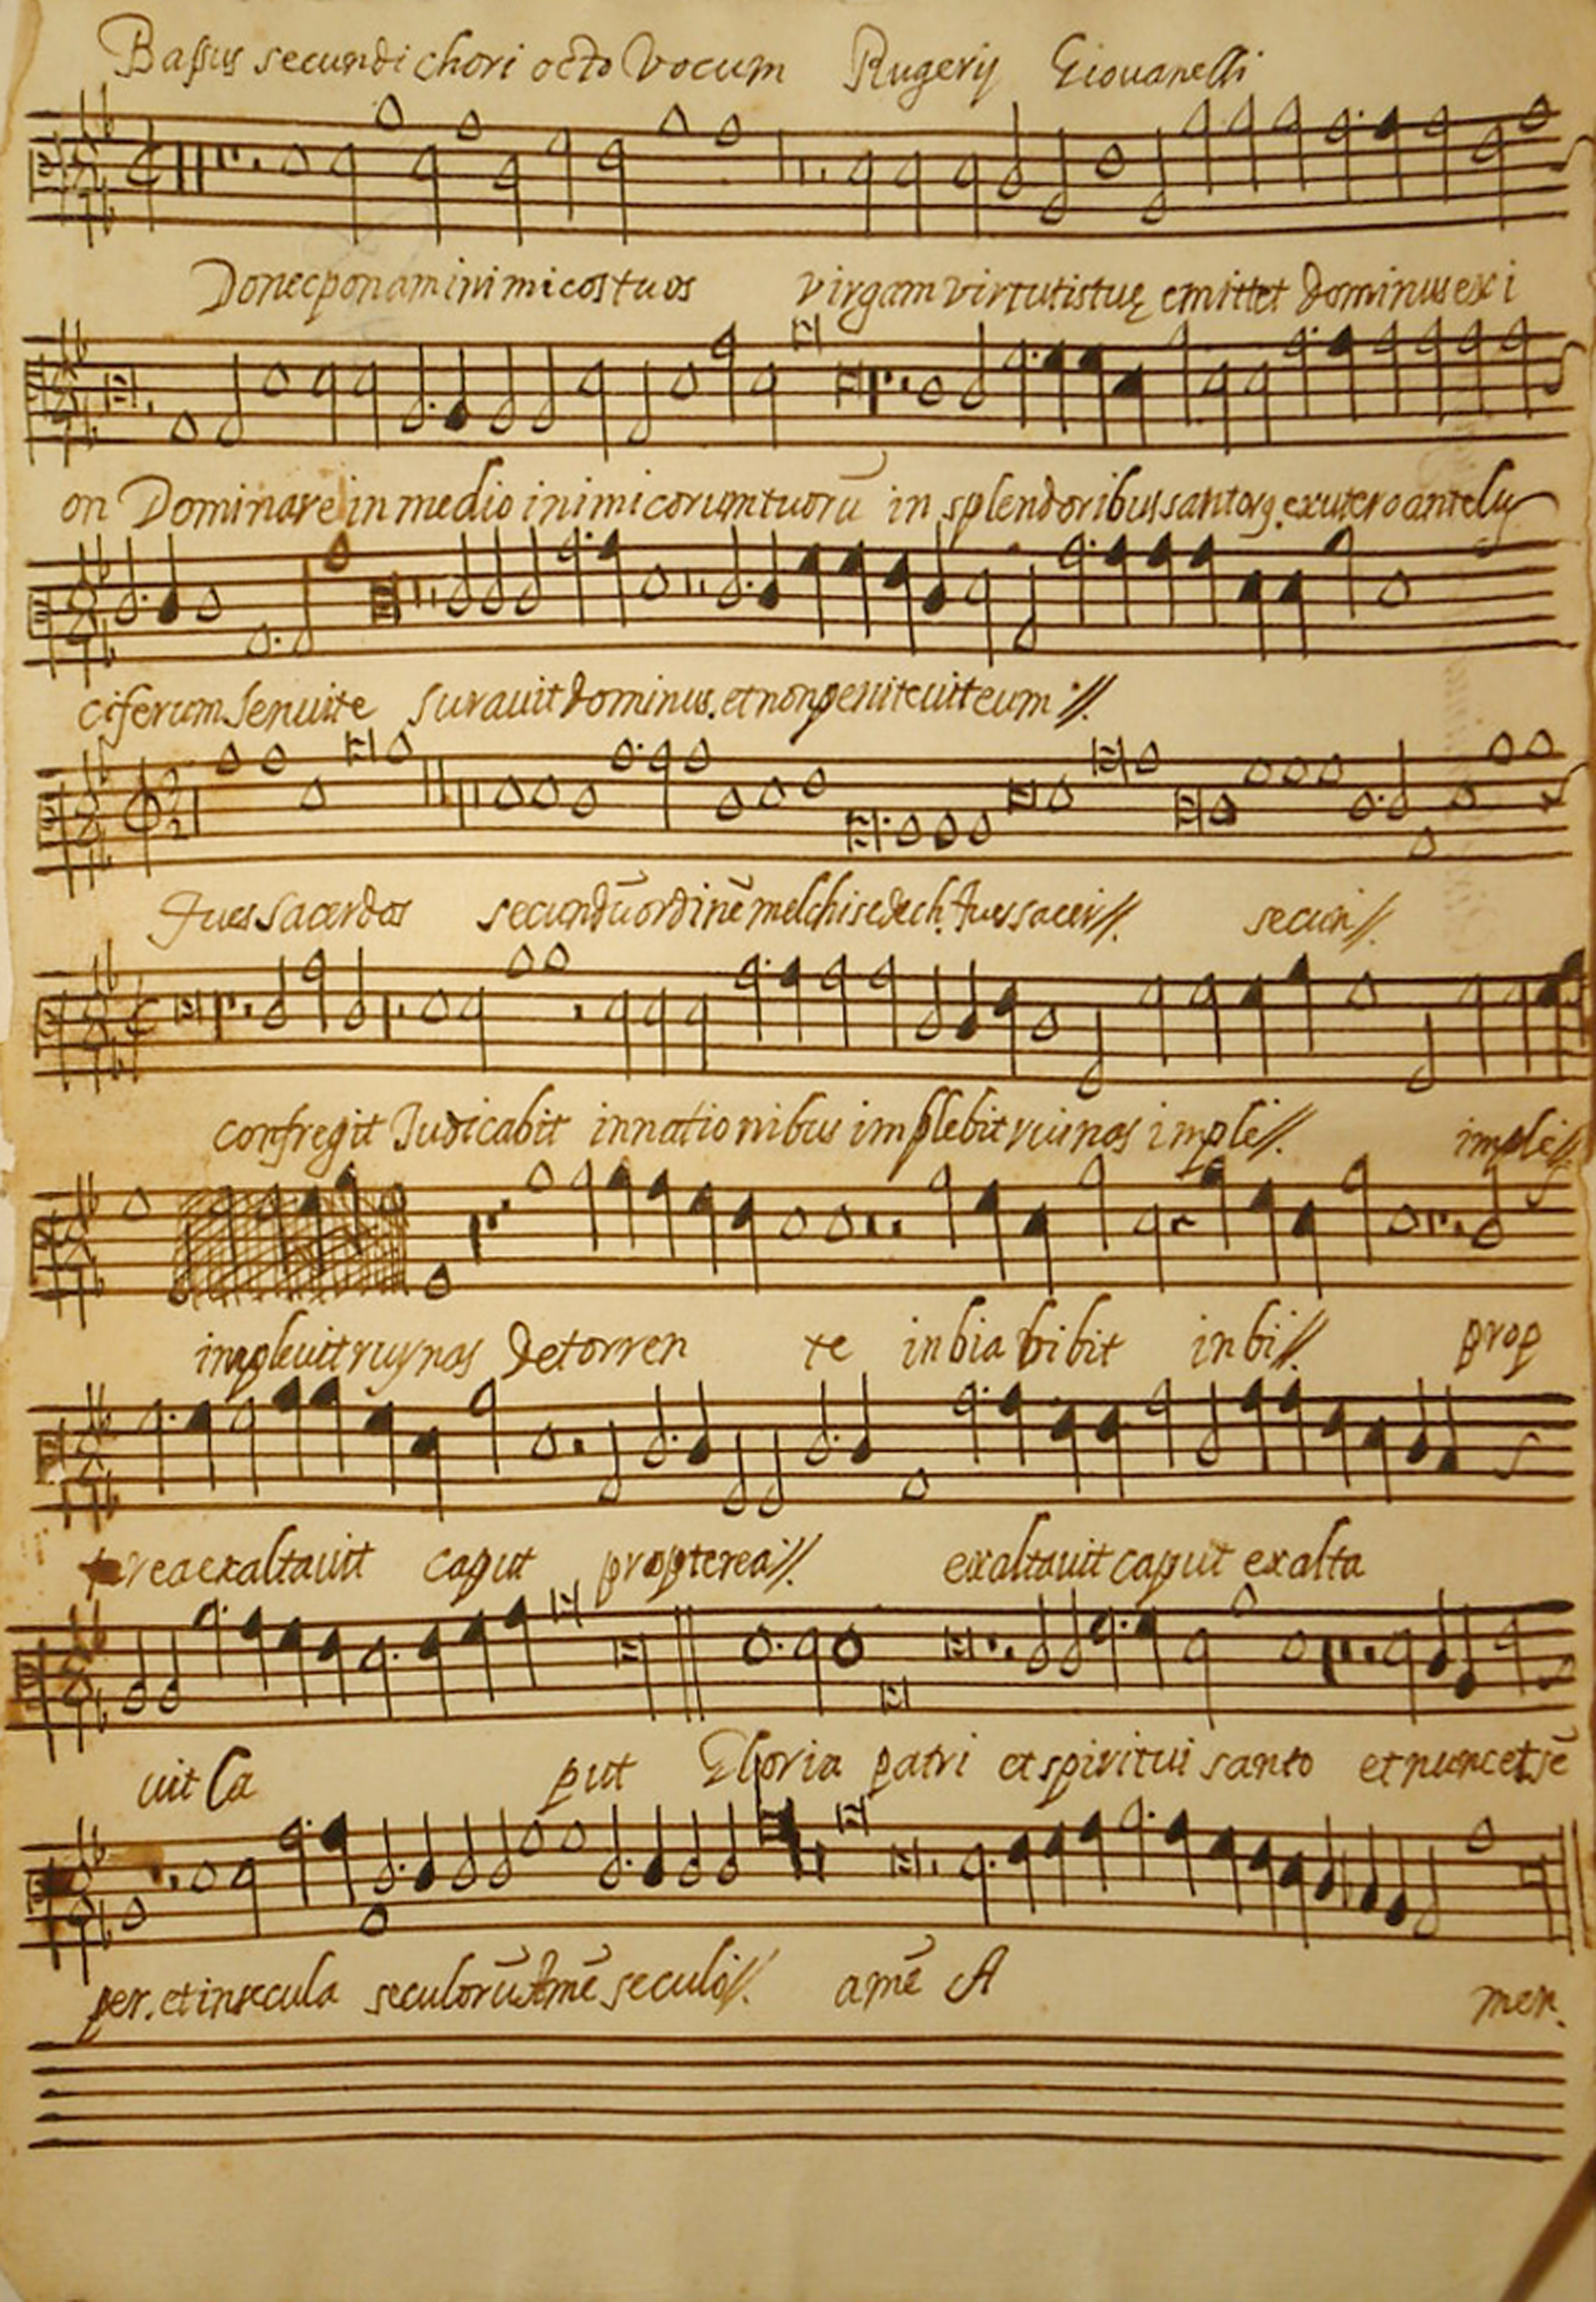 Bassus secundi chori octo vocum Rugerij Giovanelli
Donec ponam inimicos tuos virgam virtutis tuę emittet dominus ex si
on Dominare in medio inimicorum tuorū in splendoribus santorꝫ ex utero ante lu
ciferum genui te Juravit dominus. et non penitevit eum ://.
Tu es Sacerdos secundū ordinē melchisedech. tu es sacer//. secun//.
confregit Judicabit in nationibus implebit ruinas imple//. imple//.
implevit ruynas De torren te in bia bibit in bi//. prop
terea exaltavit caput propterea//. exaltavit caput exalta
vit Ca put Gloria patri et spiritui santo et nunc et sē
per. et in secula seculorū Amē seculo//. amē A men.